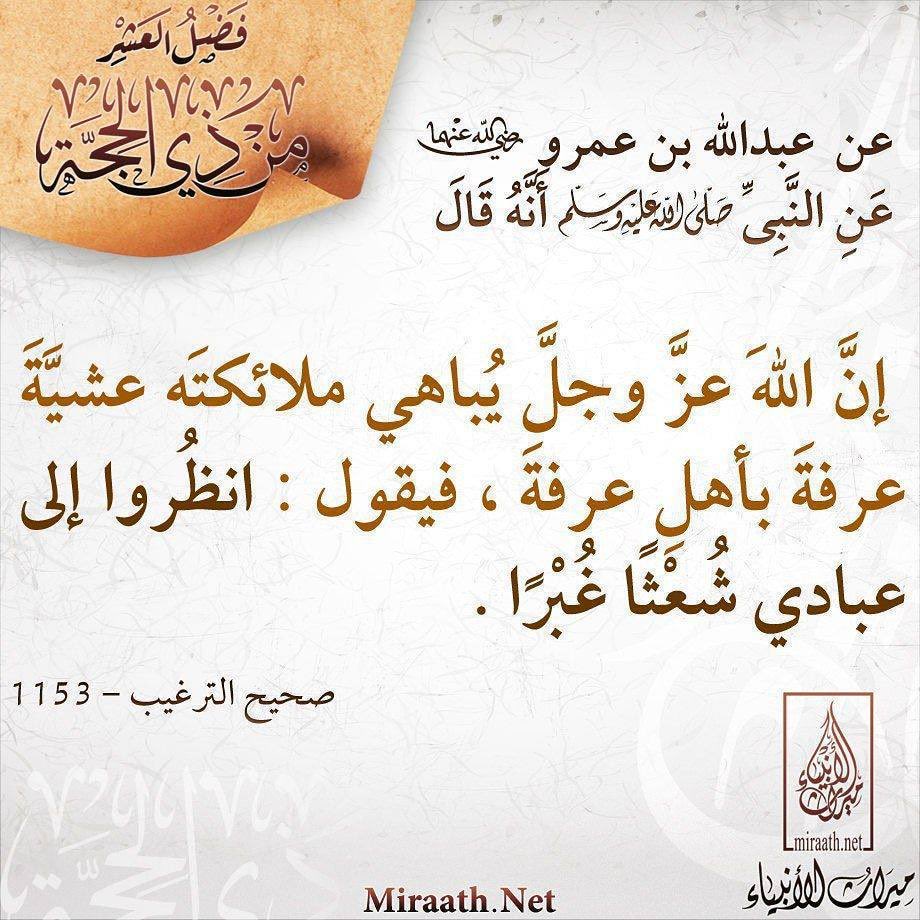 فَضْلُ العَشْرِ
مِنْ ذِي الحِجَّة
عن عبدالله بن عمرو رضي الله عنهما
عَنِ النَّبِىِّ صَلَّى اللهُ عَلَيْهِ وَسَلَّم أَنَّهُ قَالَ
إنَّ اللهَ عزَّ وجلَّ يُباهي ملائكتَه عشيَّةَ
عرفةَ بأهلِ عرفةَ ، فيقول : انظُروا إلى
عبادي شُعْثًا غُبْرًا .
صحيح الترغيب – 1153
ميراث الأنبياء
miraath.net
ميراث الأنبياء
Miraath.Net
ذي الحجة